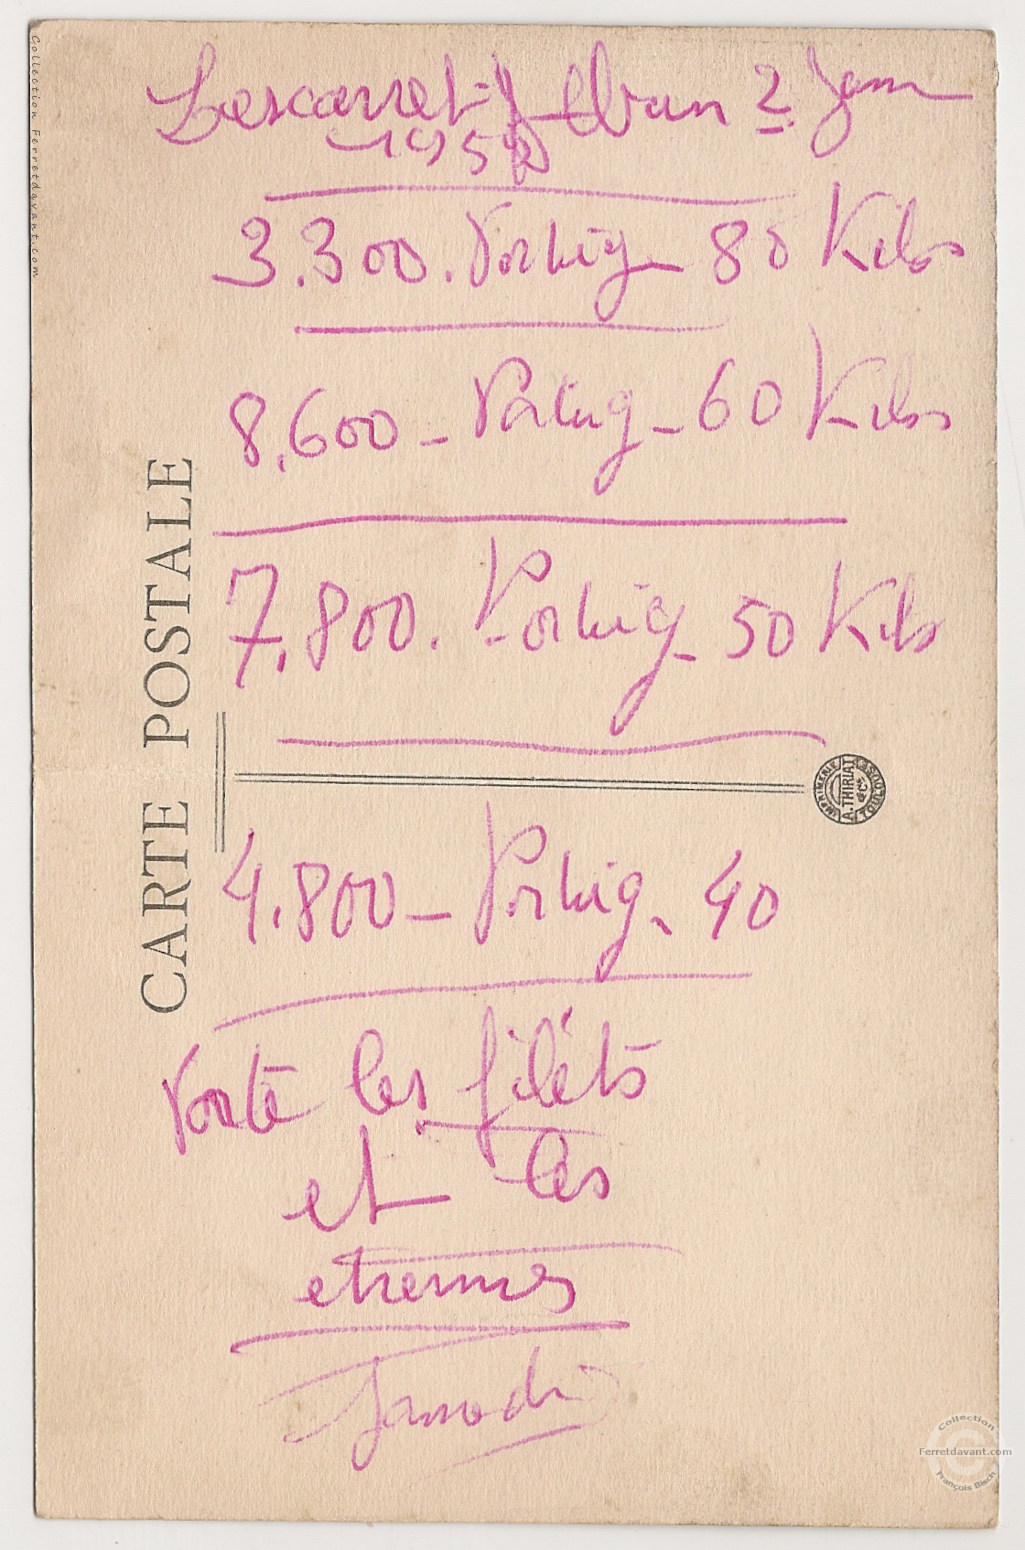 Lescarret
1952
3.300. Portug 80 Kilos
8.600 - Portug - 60 Kilos
7.800. Portug - 50 Kilos
4.800 - Portug - 40
Vente les filéts
et les
etrennes
Samedi
CARTE POSTALE
IMPRIMERIE A. THIRIAT & Cie TOULOUSE
Collection Ferretdavant.com
Collection
Ferretdavant.com
François Bisch